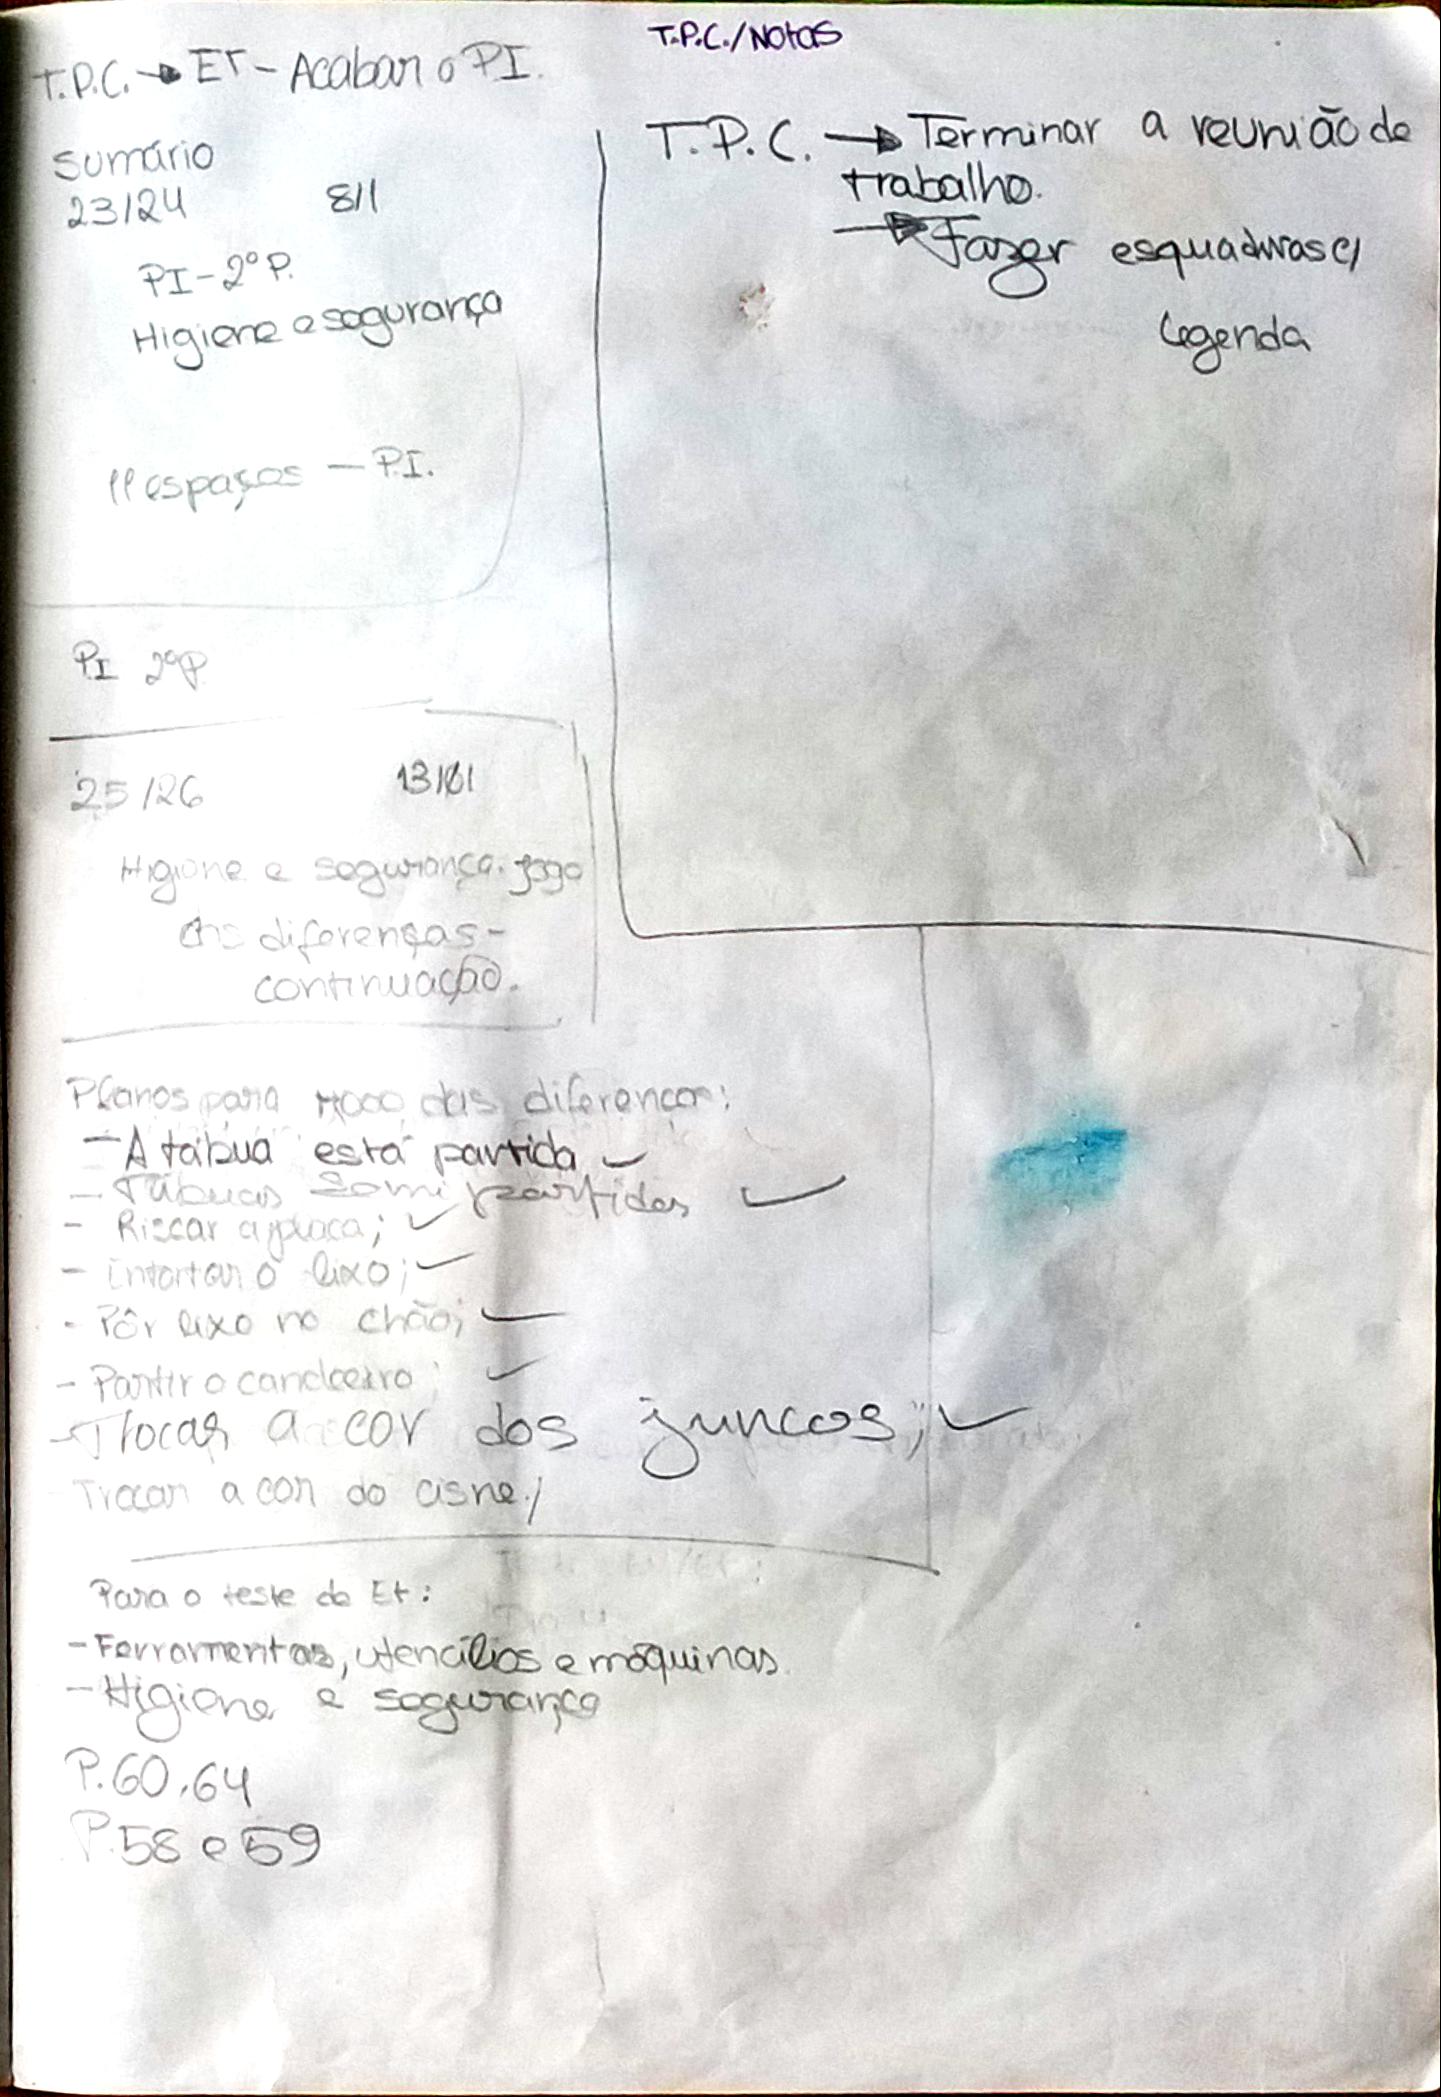 T.P.C./Notas
T.P.C. → ET - Acabar o PI.
Sumário
23/24 8/1
PI - 2º P.
Higiene e segurança
11 espaços — P.I.
PI 2ºP.
25/26 13/01
Higiene e segurança. Jogo
das diferenças -
continuação.
Planos para das diferenças:
- A tábua está partida ✓
- Tábuas semi partidas ✓
- Riscar a placa; ✓
- Entortar o lixo; ✓
- Pôr lixo no chão; ✓
- Partir o candeeiro; ✓
- Trocar a cor dos juncos; ✓
Trocar a cor do cisne;
Para o teste de Et:
- Ferramentas, utencílios e máquinas.
- Higiene e segurança
P. 60, 64
P. 58 e 59
T.P.C. → Terminar a reunião de
trabalho.
→ Fazer esquadrias c/
legenda